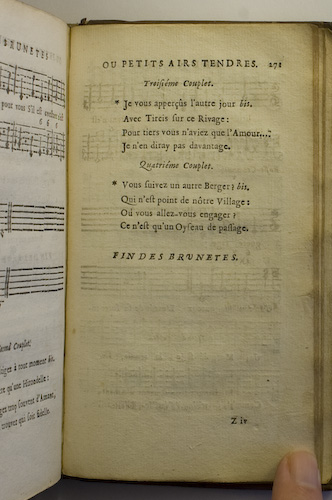 BRUNETES
pour vous s'il est
6 6 6
Second Couplet.
à tout moment bis.
qu'une Hirondelle:
trop souvent d'Amant,
trouvez qui soit fidelle.
OU PETITS AIRS TENDRES. 271
Troisiéme Couplet.
* Je vous apperçûs l'autre jour bis.
Avec Tircis sur ce Rivage:
Pour tiers vous n'aviez que l'Amour...?
Je n'en diray pas davantage.
Quatriéme Couplet.
* Vous suivez un autre Berger? bis.
Qui n'est point de nôtre Village:
Où vous allez-vous engager?
Ce n'est qu'un Oyseau de passage.
FIN DES BRUNETES.
Z iv